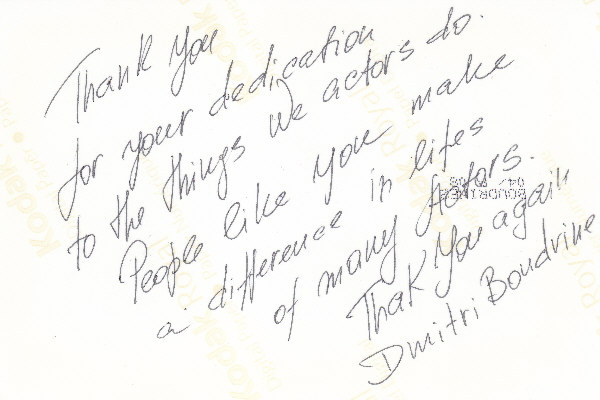 Thank You
for your dedication
to the things we actors do.
People like you make
a difference in lifes
of many Actors.
Thak You again
Dmitri Boudrine
Kodak
Kodak
Kodak
Royal